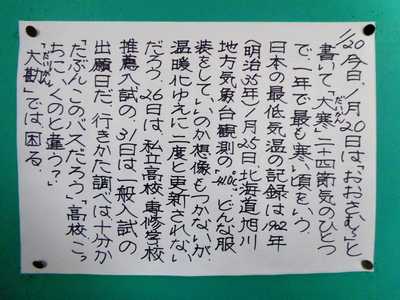 1/20 今日、1月20日は「おおさむ」と
書いて、「大寒」だいかん 二十四節気のひとつ
で、一年で最も寒い頃をいう。
日本の最低気温の記録は1902年
(明治35年)1月25日、北海道旭川
地方気象台観測の-41.0℃。どんな服
装をしていいのか想像もつかないが、
温暖化ゆえに二度と更新されない
だろう。26日は、私立高校、専修学校
推薦入試の、31日は一般入試の
出願日だ。行きかた調べは十分か
「たぶんこのバスだろう」、「高校、こっ
ちに、いくのと違う?」
"大勘"だいかん では困る。